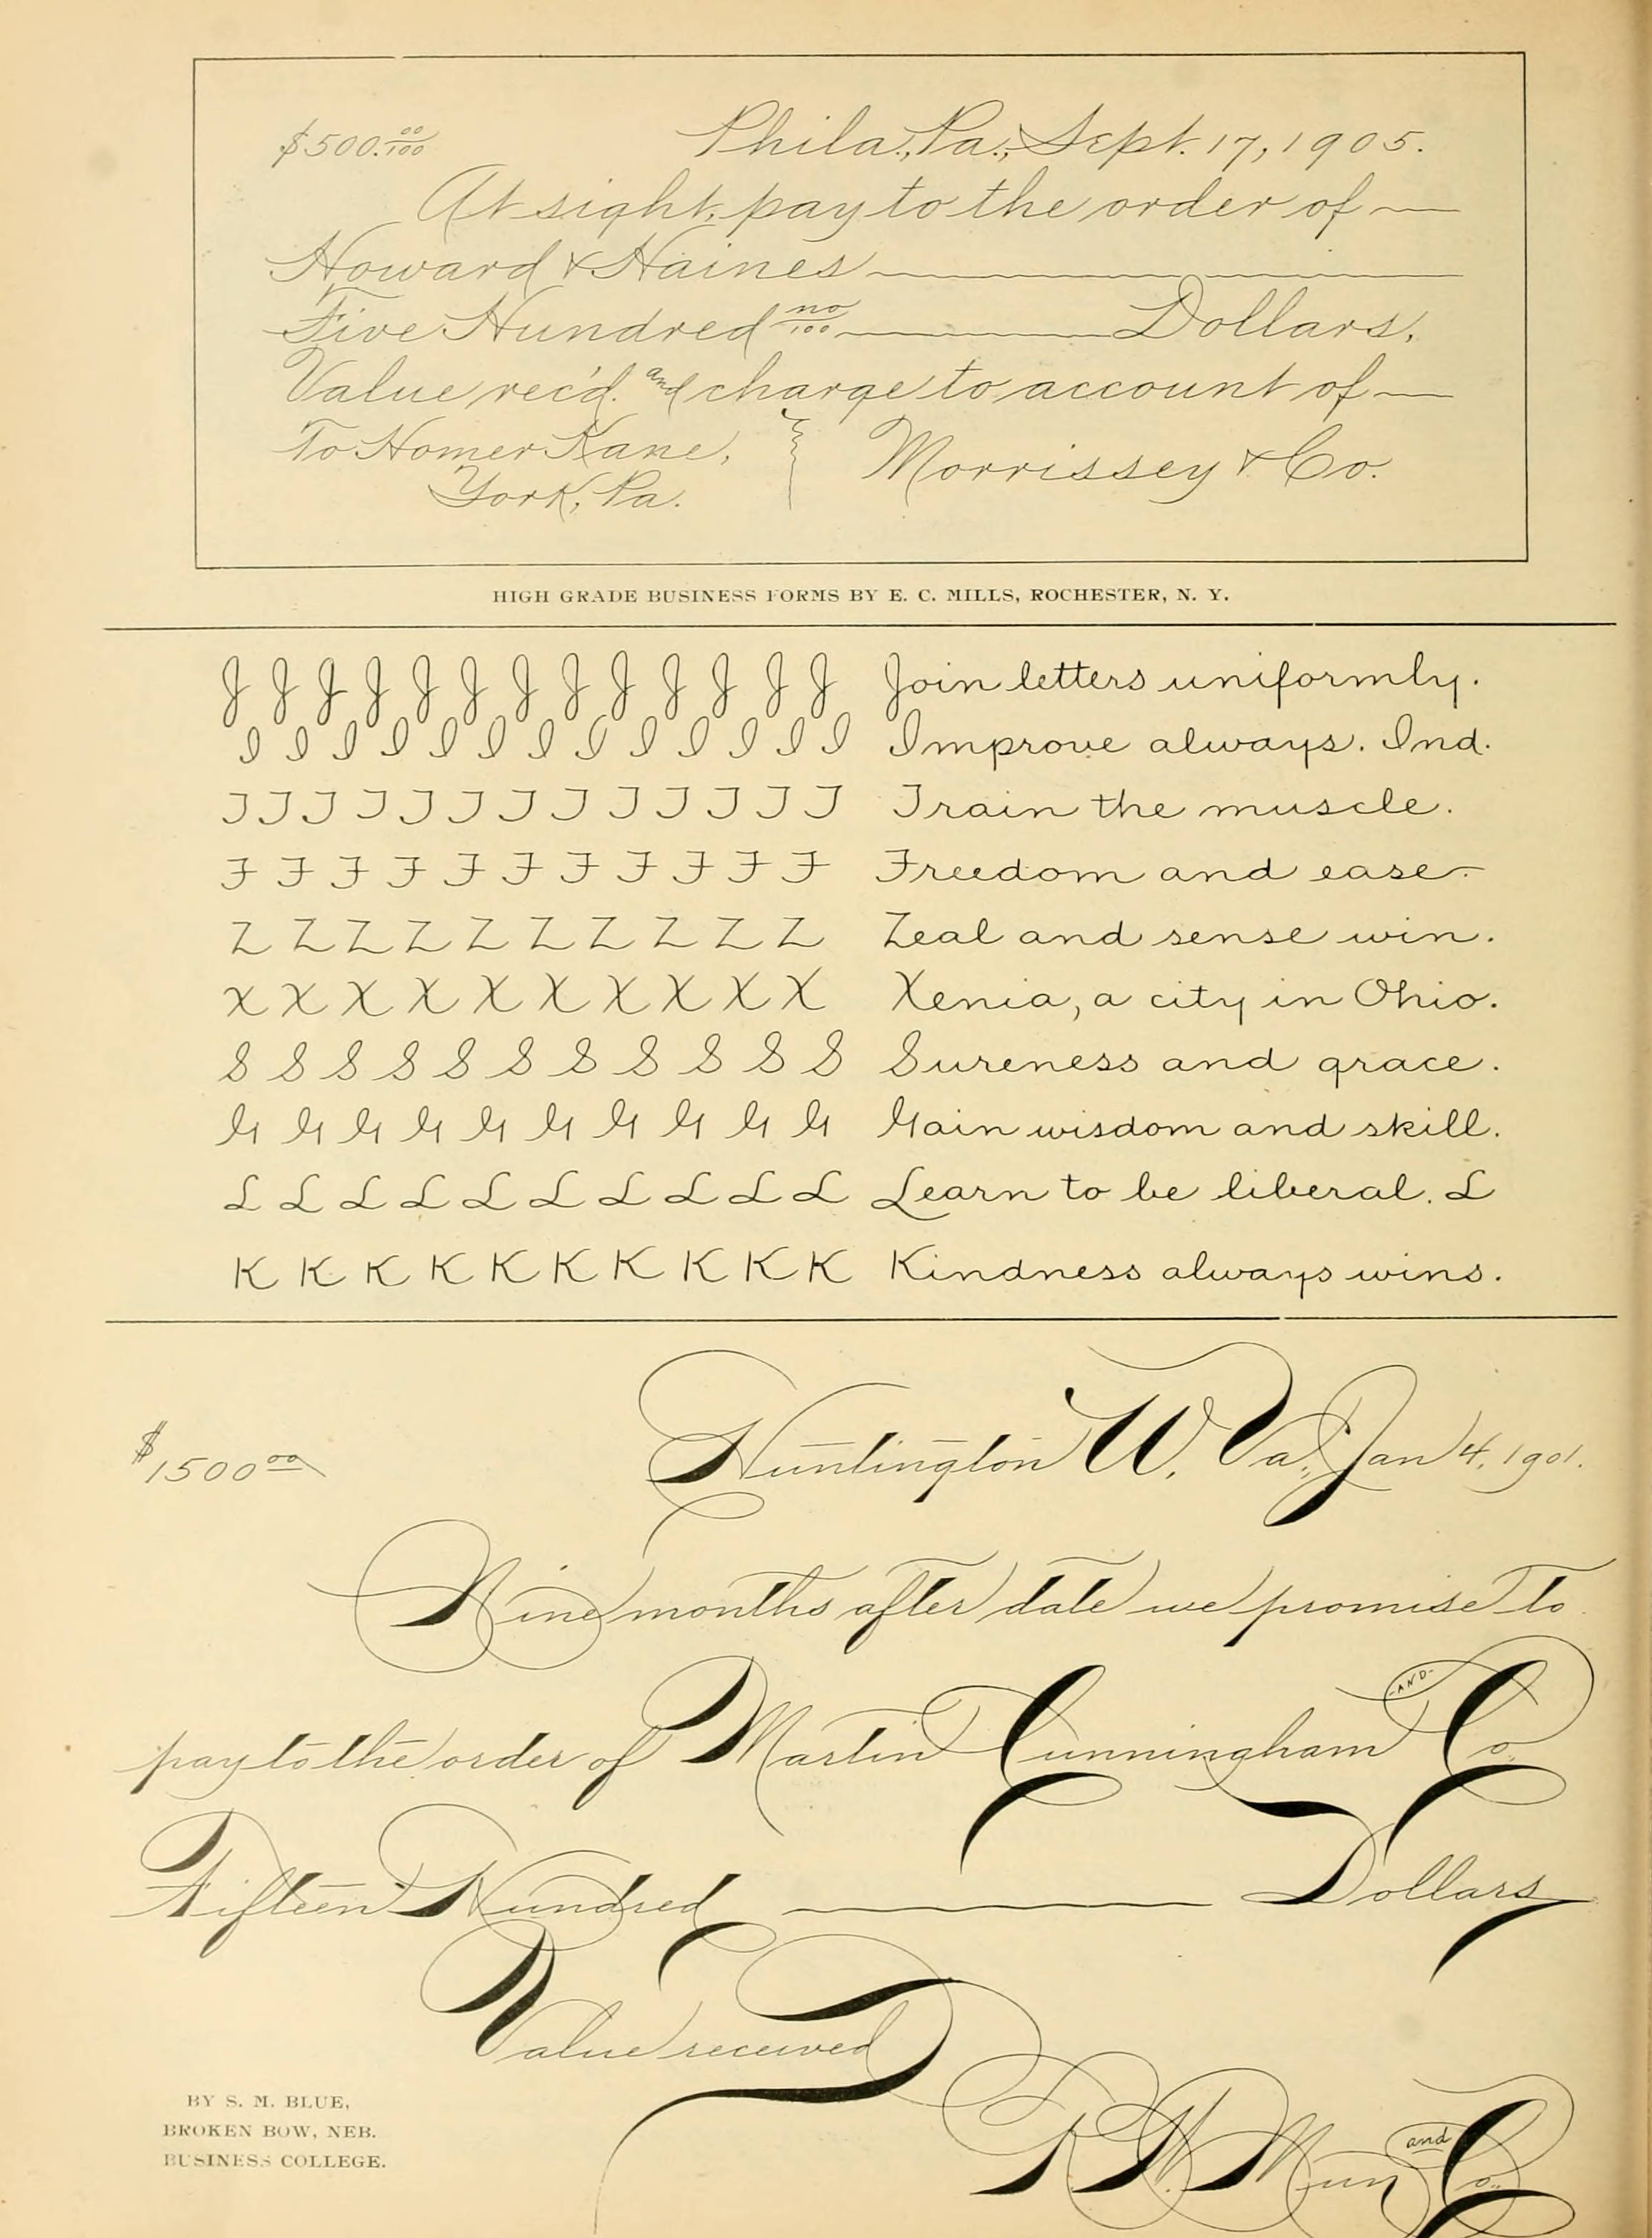 $500.00/100 Phila., Pa., Sept. 17, 1905.
At sight, pay to the order of
Howard & Haines
Five Hundred no/100 Dollars.
Value rec'd. and charge to account of
To Homer Kane, Morrissey & Co.
York, Pa.
HIGH GRADE BUSINESS FORMS BY E. C. MILLS, ROCHESTER, N. Y.
J J J J J J J J J J J J J Join letters uniformly.
I I I I I I I I I I I I I Improve always. Ind.
T T T T T T T T T T T T T Train the muscle.
F F F F F F F F F F F Freedom and ease.
Z Z Z Z Z Z Z Z Z Z Zeal and sense win.
X X X X X X X X X X Xenia, a city in Ohio.
S S S S S S S S S S S Sureness and grace.
G G G G G G G G G G Gain wisdom and skill.
L L L L L L L L L L Learn to be liberal. L
K K K K K K K K K K Kindness always wins.
$1500 00 Huntington W. Va., Jan 4, 1901.
Nine months after date we promise to
pay to the order of Martin Cunningham AND Co.
Fifteen Hundred Dollars
Value received
BY S. M. BLUE,
BROKEN BOW, NEB.
BUSINESS COLLEGE.
and Co.